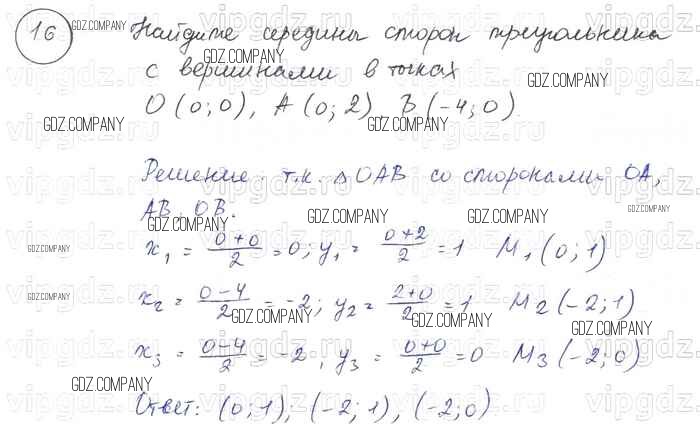 16 Найдите середины сторон треугольника
с вершинами в точках
O (0; 0), A (0; 2), B (-4; 0)
Решение: т.к. △ OAB со сторонами OA,
AB, OB.
x₁ = (0+0)/2 = 0; y₁ = (0+2)/2 = 1 M₁ (0; 1)
x₂ = (0-4)/2 = -2; y₂ = (2+0)/2 = 1 M₂ (-2; 1)
x₃ = (0-4)/2 = -2, y₃ = (0+0)/2 = 0 M₃ (-2; 0)
Ответ: (0; 1); (-2; 1), (-2; 0)
GDZ.COMPANY
vipgdz.ru